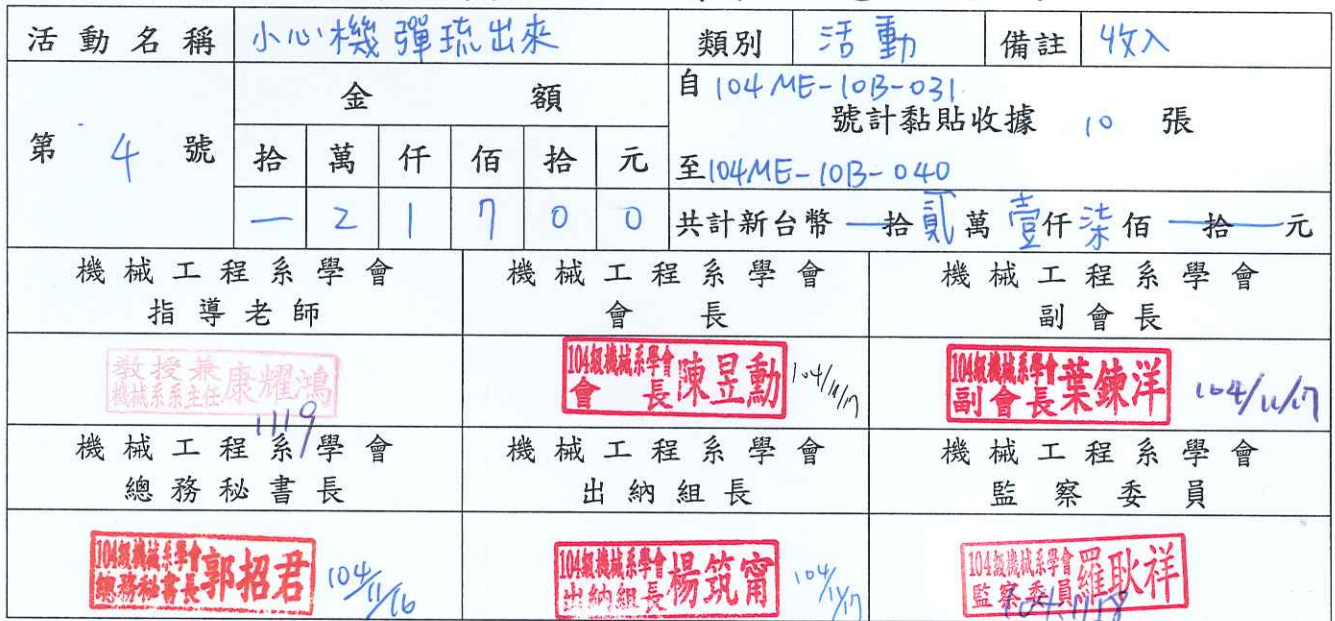 活動名稱 小心機彈珫出來 類別 活動 備註 收入
第 4 號
金額
拾 萬 仟 佰 拾 元
— 2 1 7 0 0
自 104ME-10B-031
號計黏貼收據 10 張
至104ME-10B-040
共計新台幣 — 拾 貳 萬 壹 仟 柒 佰 — 拾 — 元
機械工程系學會 機械工程系學會 機械工程系學會
指導老師 會長 副會長
教授兼
機械系系主任 康耀鴻
1119
104級機械系學會
會長 陳昱勳 104/11/17
104級機械系學會
副會長 葉鍊洋 104/11/17
機械工程系學會 機械工程系學會 機械工程系學會
總務秘書長 出納組長 監察委員
104級機械系學會
總務秘書長 郭招君 104/11/16
104級機械系學會
出納組長 楊筑甯 104/11/17
104級機械系學會
監察委員 羅耿祥
104/11/18